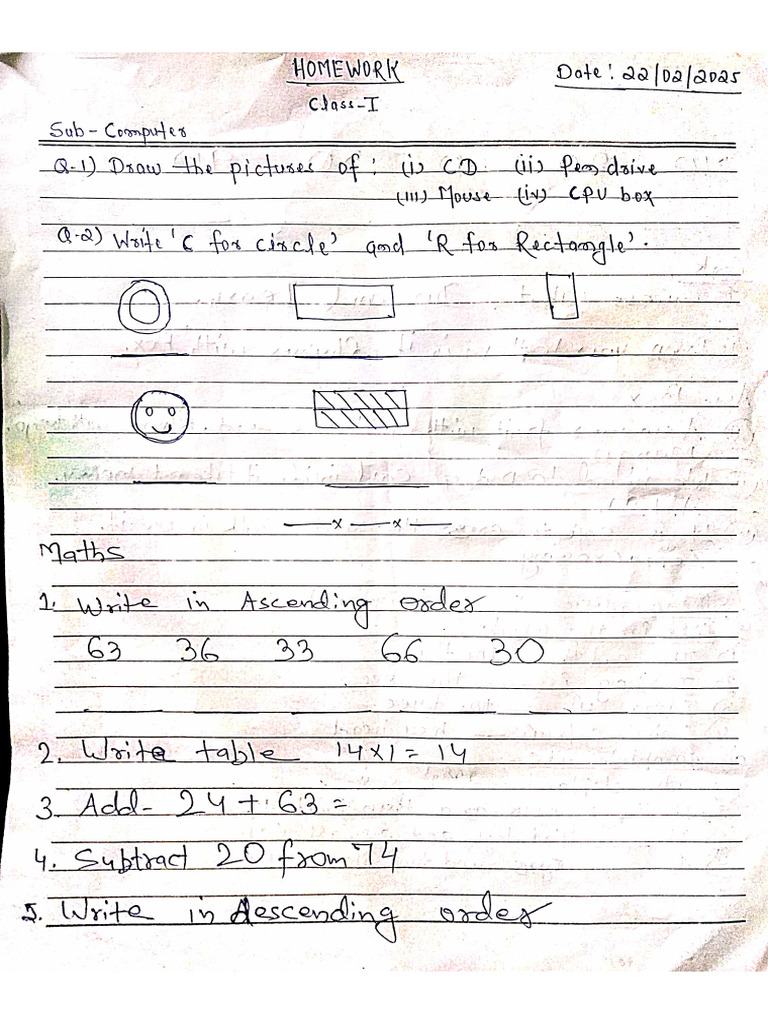 HOMEWORK
Date: 22/02/2025
Class-I
Sub-Computer
Q-1) Draw the pictures of: (i) CD (ii) Pen drive
(iii) Mouse (iv) CPU box
Q-2) Write 'C for circle' and 'R for Rectangle'.
—x—x—
Maths
1. Write in Ascending order
63 36 33 66 30
2. Write table 14x1=14
3. Add- 24+63=
4. Subtract 20 from 74
5. Write in descending order